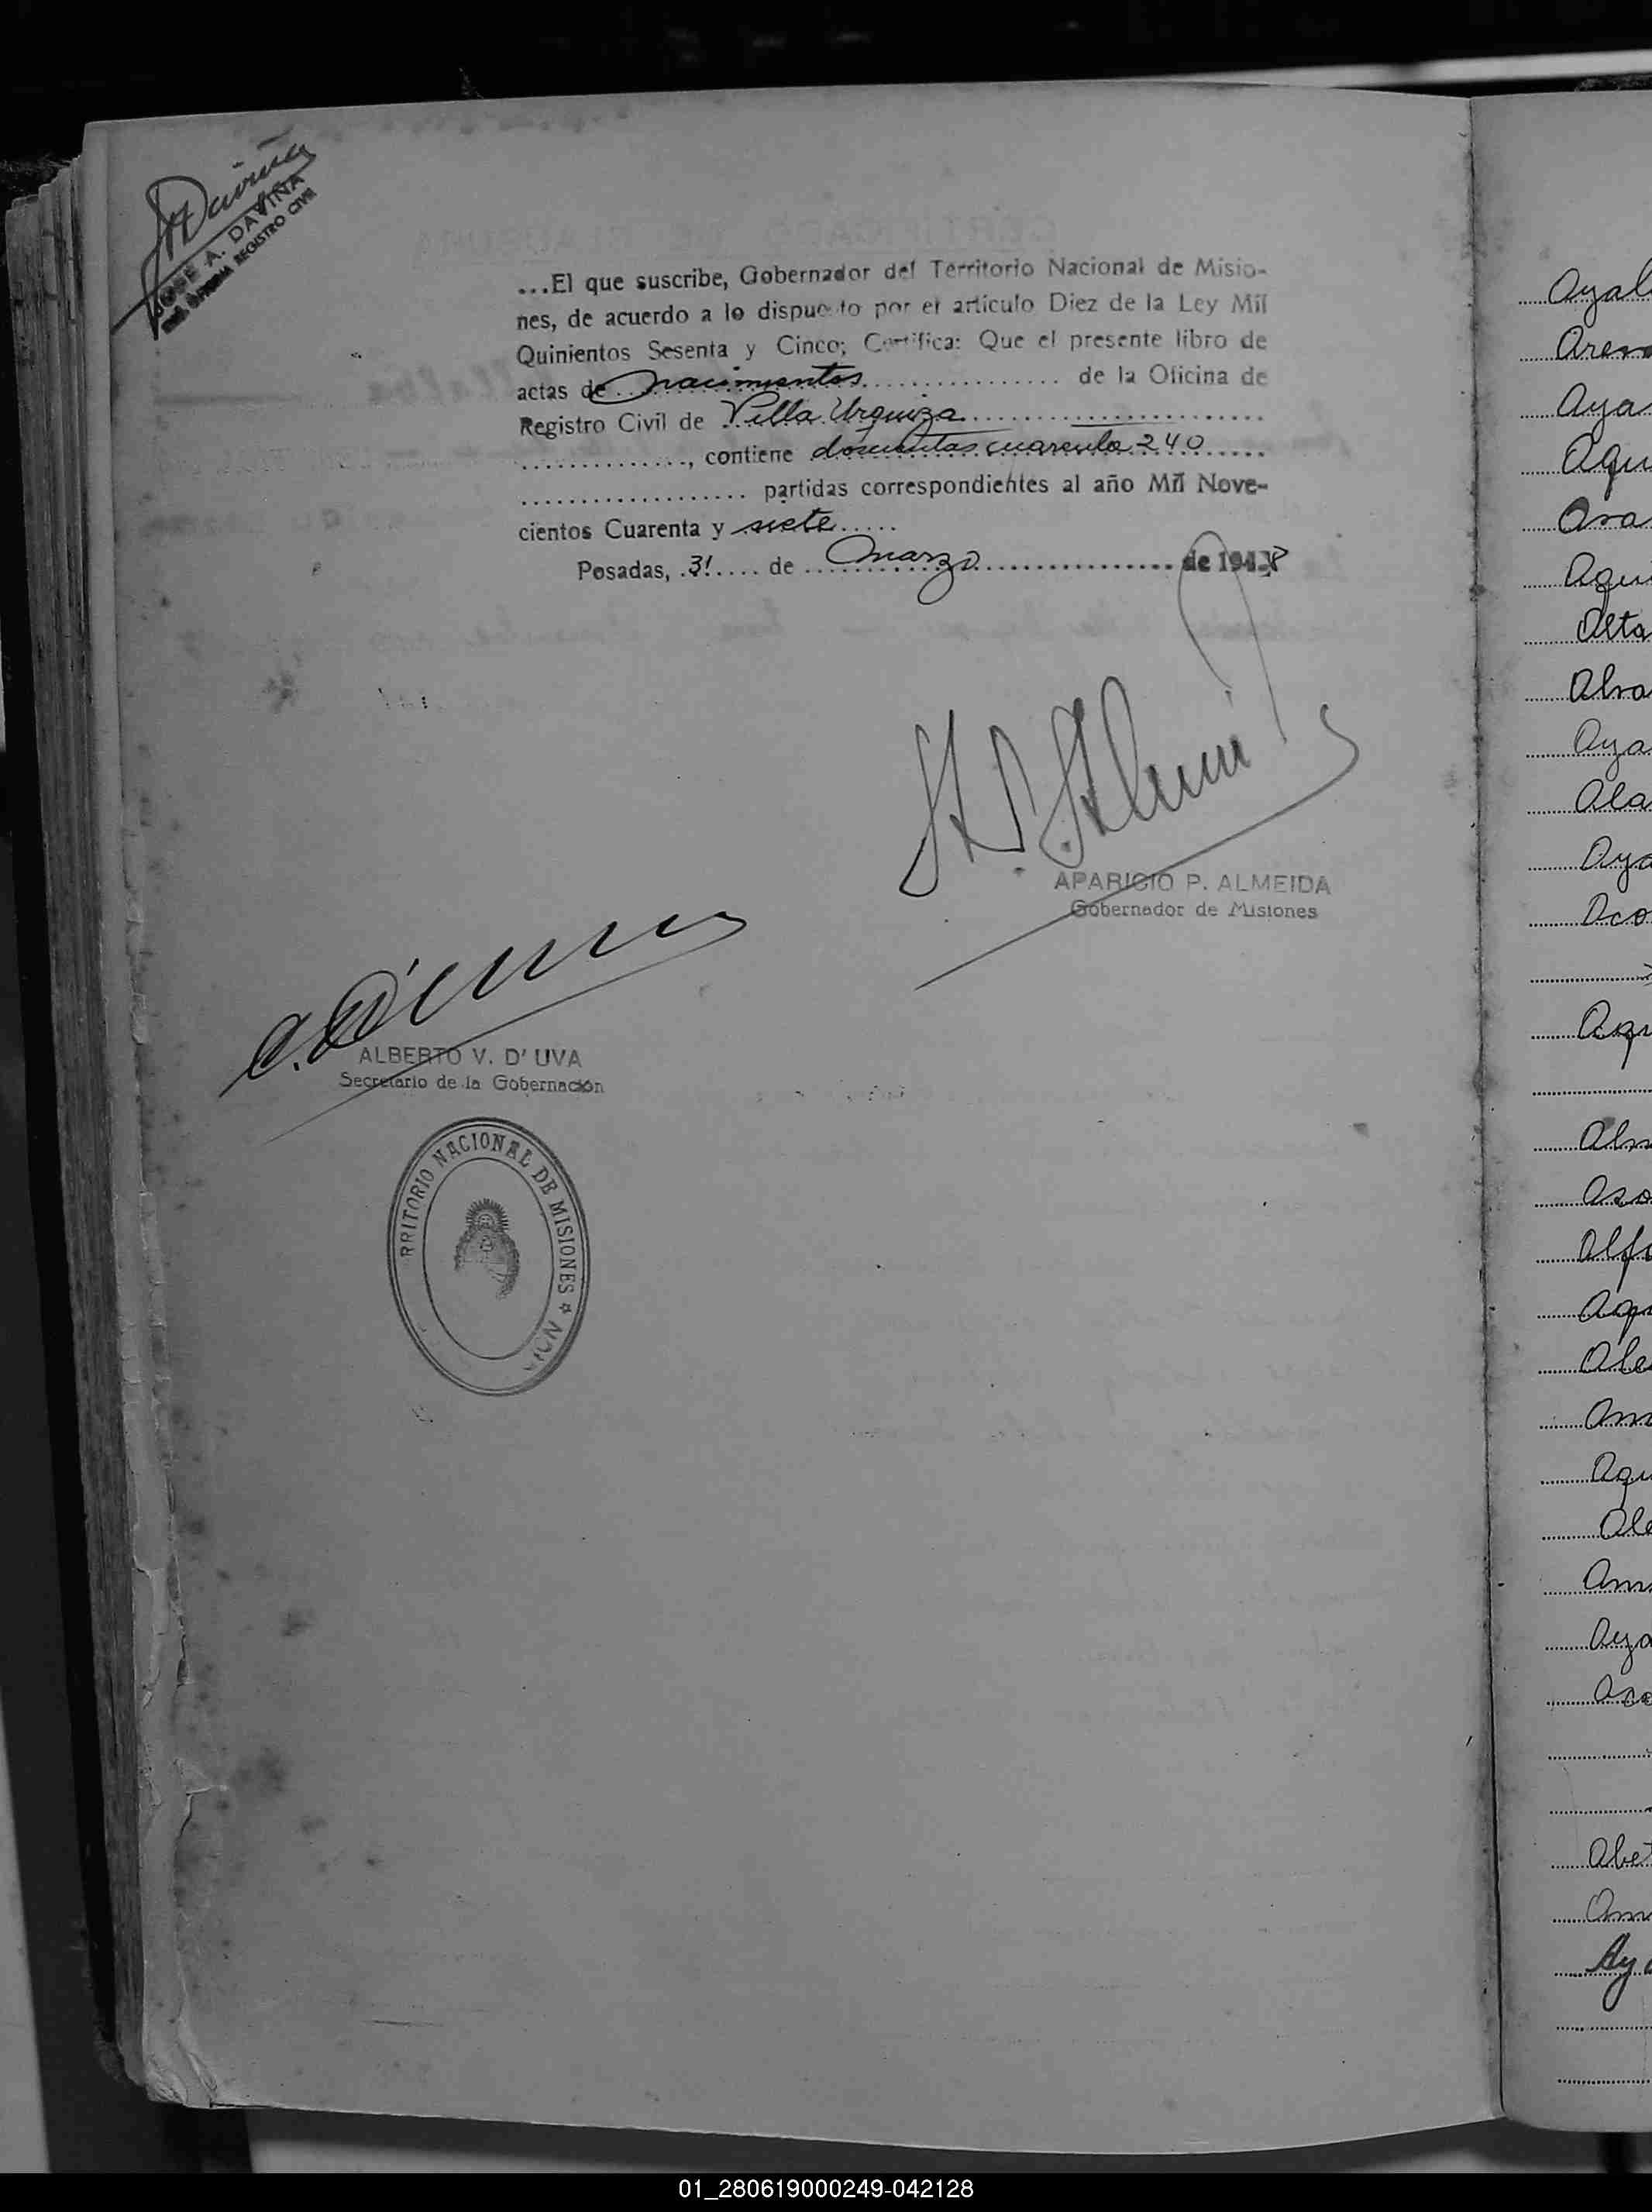 JOSE A. DAVIÑA
REGISTRO CIVIL
...El que suscribe, Gobernador del Territorio Nacional de Misio-
nes, de acuerdo a lo dispuesto por el artículo Diez de la Ley Mil
Quinientos Sesenta y Cinco; Certifica: Que el presente libro de
actas de nacimientos ................. de la Oficina de
Registro Civil de Villa Urquiza ........................
..............., contiene doscientas cuarenta 240 .....
.................... partidas correspondientes al año Mil Nove-
cientos Cuarenta y siete.....
Posadas, .31.... de ....Marzo................. de 1948
APARICIO P. ALMEIDA
Gobernador de Misiones
ALBERTO V. D' UVA
Secretario de la Gobernación
RRITORIO NACIONAL DE MISIONES ☆
Ayal
Aya
Aqu
Alta
Aya
Ala
Aya
Aco
Alf
Aqu
Abe
Ay
01_280619000249-042128